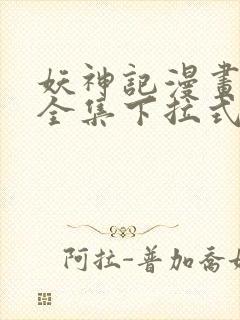 妖神記漫畫
全集下拉式
阿拉-普加喬